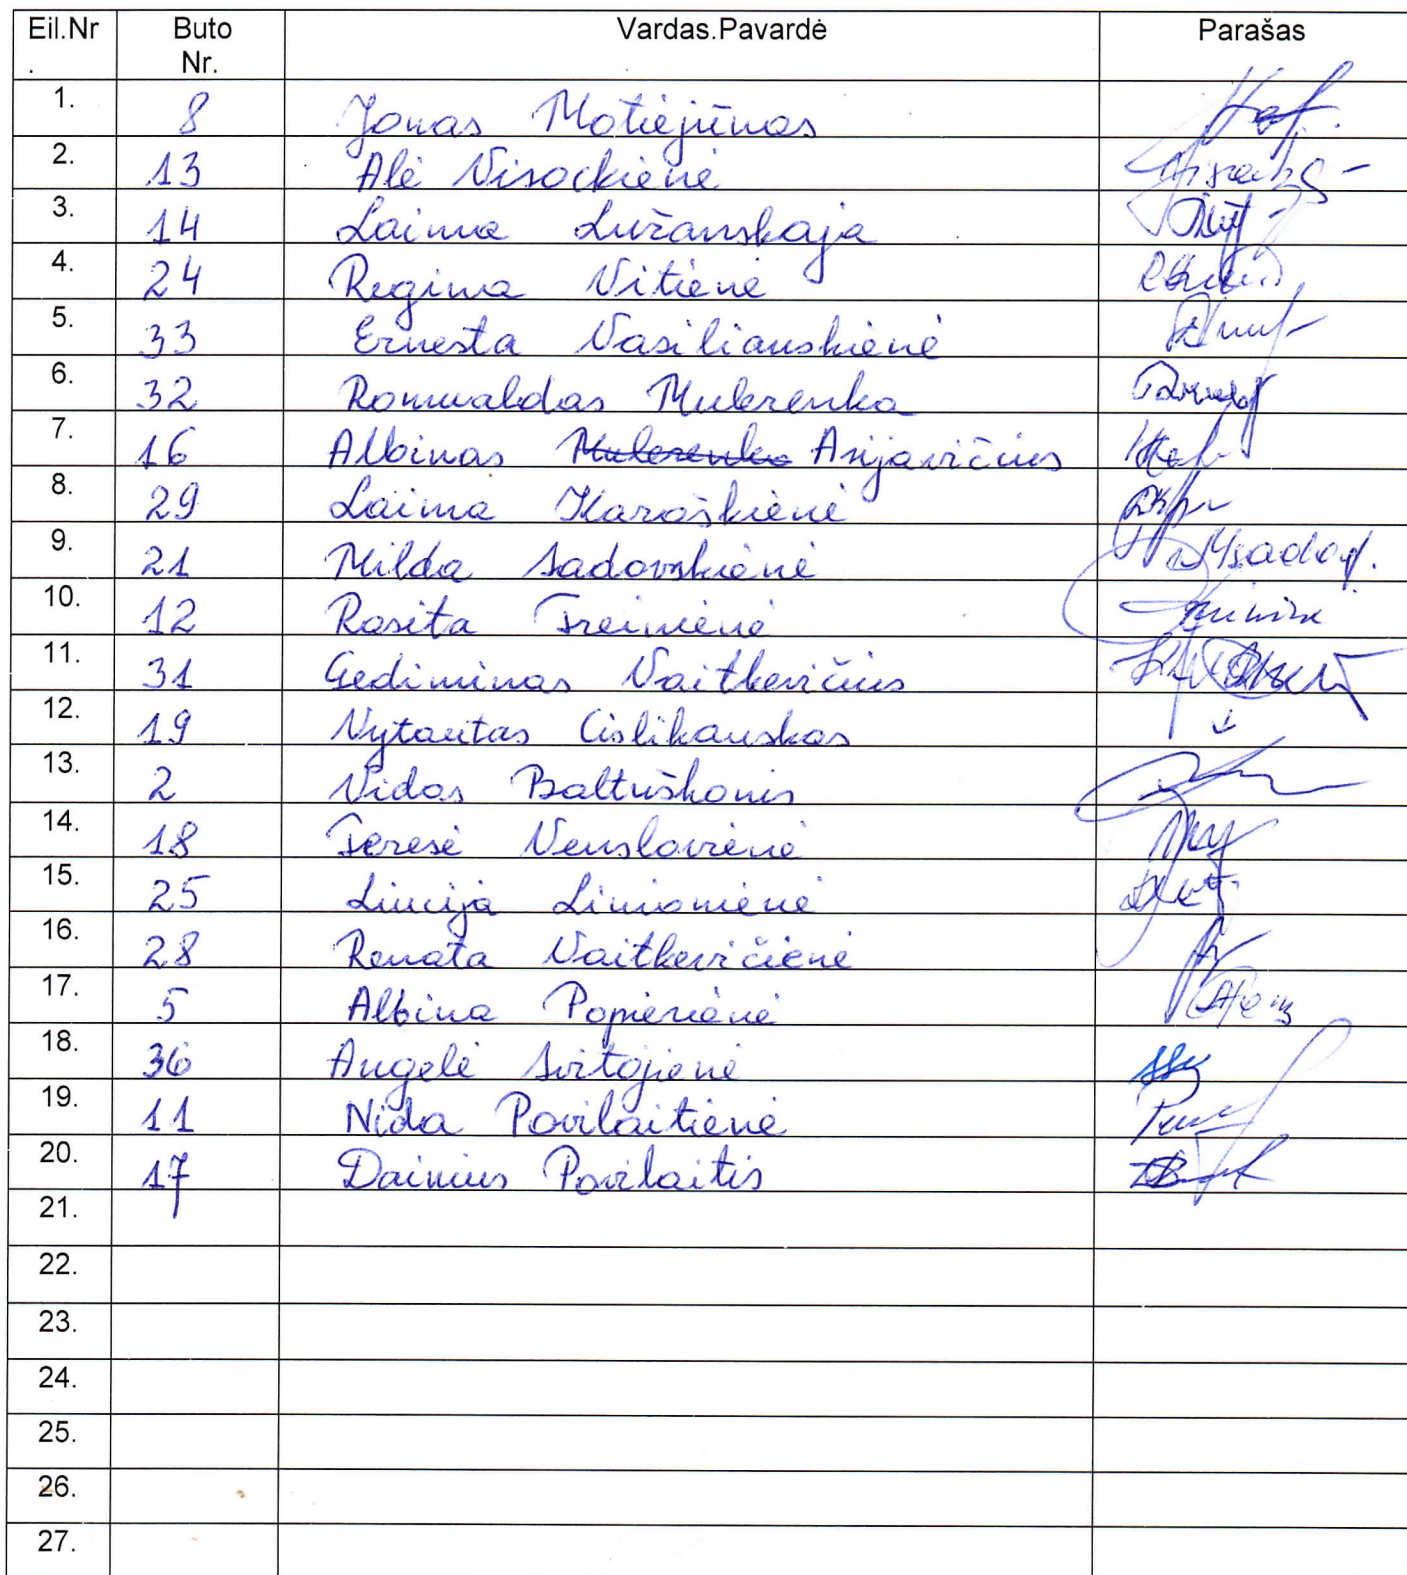 Eil.Nr. Buto Nr. Vardas.Pavardė Parašas
1. 8 Jonas Motiejūnas
2. 13 Alė Visockienė
3. 14 Laima Lužanskaja
4. 24 Regina Vitienė
5. 33 Ernesta Vasiliauskienė
6. 32 Romualdas Mulerenka
7. 16 Albinas Asijavičius
8. 29 Laima Karaškienė
9. 21 Milda Sadovskienė
10. 12 Rasita Treinienė
11. 31 Gediminas Vaitkevičius
12. 19 Vytautas Cislikauskas
13. 2 Vidas Baltuškonis
14. 18 Teresė Venslovienė
15. 25 Liucija Linionienė
16. 28 Renata Vaitkevičienė
17. 5 Albina Popierienė
18. 36 Angelė Svitojienė
19. 11 Nida Povilaitienė
20. 17 Dainius Povilaitis
21.
22.
23.
24.
25.
26.
27.